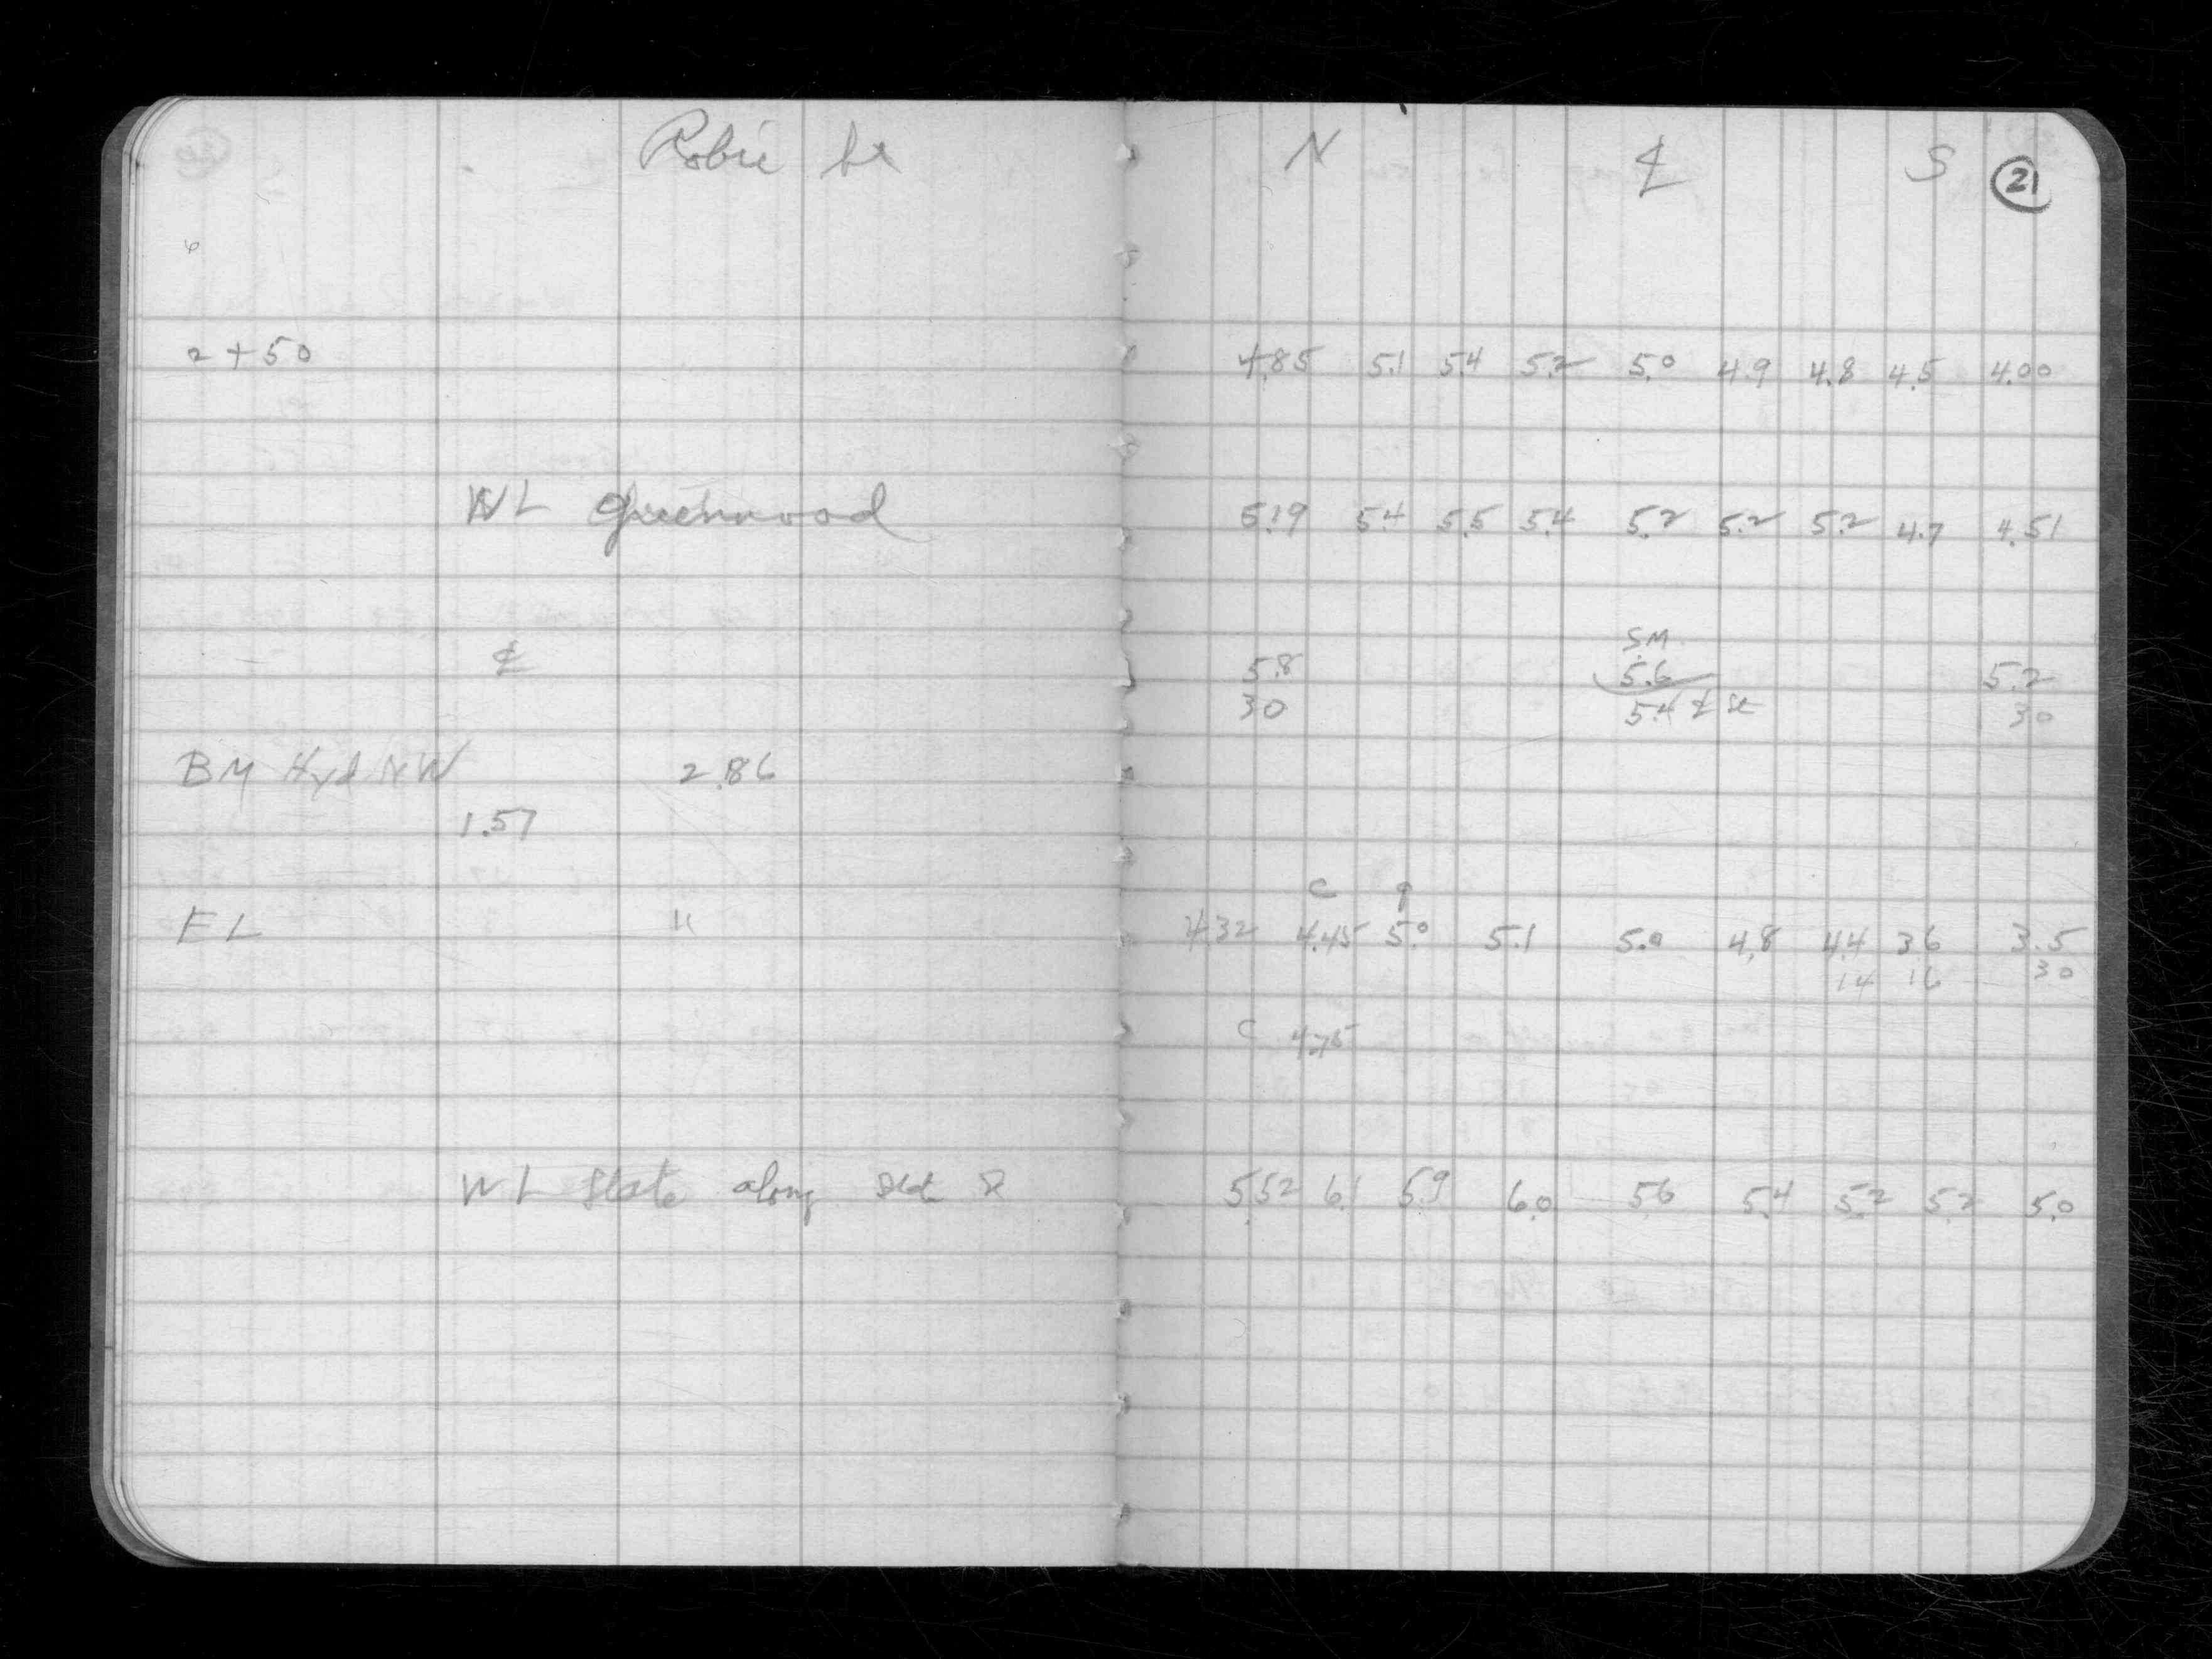 Robie St N ℄ S 21
2+50 4.85 5.1 5.4 5.2 5.0 4.9 4.8 4.5 4.00
WL Greenwood 5.19 5.4 5.5 5.4 5.2 5.2 5.2 4.7 4.51
S.M.
℄ 5.8 5.6 5.2
30 5.4 ℄ St 30
BM Hyd NW 2.86
1.57
C g
EL " 4.32 4.45 5.0 5.1 5.0 4.8 4.4 3.6 3.5
14 16 30
C 4.75
WL State along 5.52 6.1 5.9 6.0 5.6 5.4 5.2 5.2 5.0